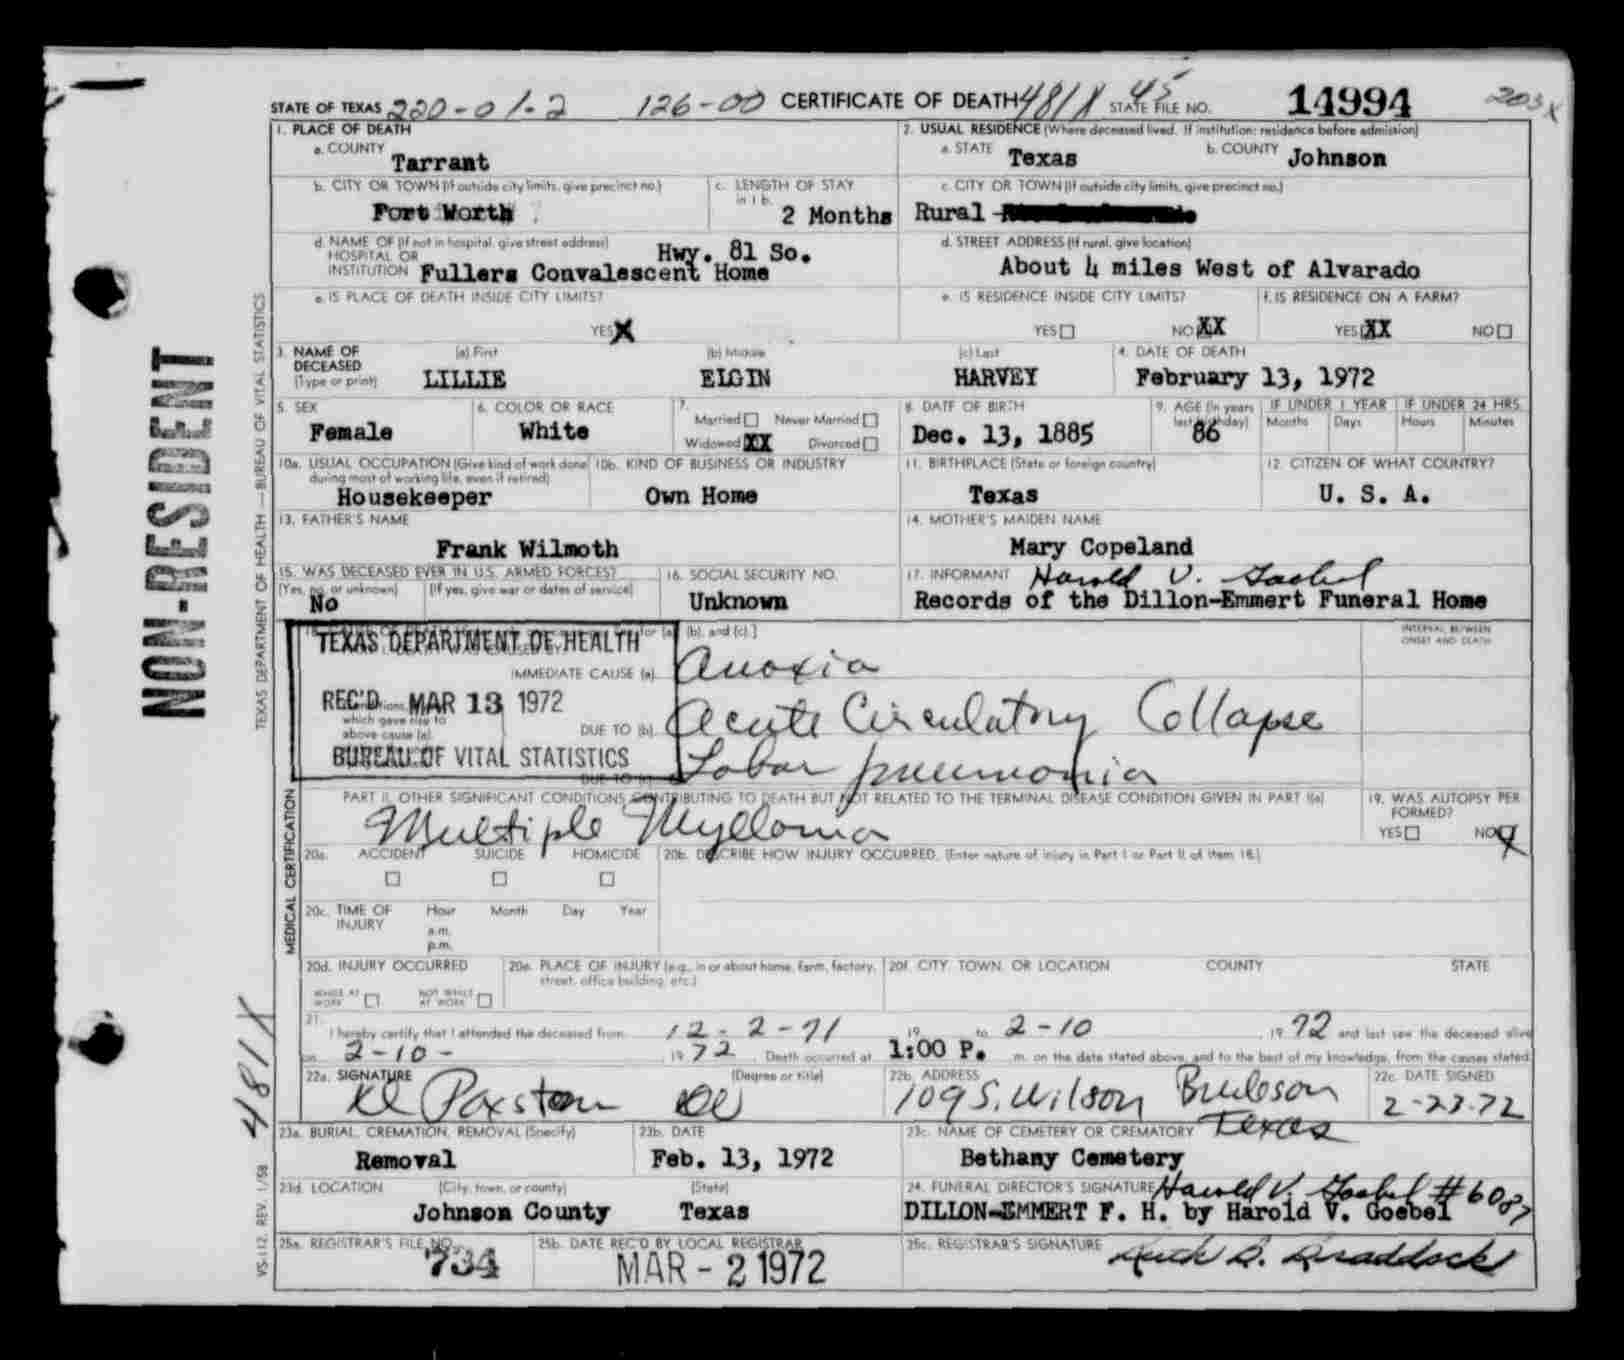 STATE OF TEXAS 220-01-2 126-00 CERTIFICATE OF DEATH 481X 45 STATE FILE NO. 14994 203X
1. PLACE OF DEATH
a. COUNTY Tarrant
2. USUAL RESIDENCE (Where deceased lived. If institution: residence before admission)
a. STATE Texas b. COUNTY Johnson
b. CITY OR TOWN (If outside city limits, give precinct no.) Fort Worth
c. LENGTH OF STAY in 1 b. 2 Months
c. CITY OR TOWN (If outside city limits, give precinct no.) Rural
d. NAME OF (If not in hospital, give street address) HOSPITAL OR INSTITUTION Hwy. 81 So.
Fullers Convalescent Home
d. STREET ADDRESS (If rural, give location)
About 4 miles West of Alvarado
e. IS PLACE OF DEATH INSIDE CITY LIMITS?
YES X
e. IS RESIDENCE INSIDE CITY LIMITS?
YES NO XX
f. IS RESIDENCE ON A FARM?
YES XX NO
3. NAME OF DECEASED (Type or print)
(a) First (b) Middle (c) Last
LILLIE ELGIN HARVEY
4. DATE OF DEATH
February 13, 1972
5. SEX
Female
6. COLOR OR RACE
White
7.
Married Never Married
Widowed XX Divorced
8. DATE OF BIRTH
Dec. 13, 1885
9. AGE (In years last birthday)
86
IF UNDER 1 YEAR
Months Days
IF UNDER 24 HRS.
Hours Minutes
10a. USUAL OCCUPATION (Give kind of work done during most of working life, even if retired)
Housekeeper
10b. KIND OF BUSINESS OR INDUSTRY
Own Home
11. BIRTHPLACE (State or foreign country)
Texas
12. CITIZEN OF WHAT COUNTRY?
U. S. A.
13. FATHER'S NAME
Frank Wilmoth
14. MOTHER'S MAIDEN NAME
Mary Copeland
15. WAS DECEASED EVER IN U.S. ARMED FORCES?
(Yes, no, or unknown) (If yes, give war or dates of service)
No
16. SOCIAL SECURITY NO.
Unknown
17. INFORMANT Harold V. Goebel
Records of the Dillon-Emmert Funeral Home
TEXAS DEPARTMENT OF HEALTH
REC'D MAR 13 1972
BUREAU OF VITAL STATISTICS
for (a), (b), and (c).]
INTERVAL BETWEEN ONSET AND DEATH
IMMEDIATE CAUSE (a) Anoxia
which gave rise to above cause (a)
DUE TO (b) Acute Circulatory Collapse
DUE TO (c) Lobar pneumonia
PART II. OTHER SIGNIFICANT CONDITIONS CONTRIBUTING TO DEATH BUT NOT RELATED TO THE TERMINAL DISEASE CONDITION GIVEN IN PART I(a)
Multiple Myeloma
19. WAS AUTOPSY PERFORMED?
YES NO X
20a. ACCIDENT SUICIDE HOMICIDE
20b. DESCRIBE HOW INJURY OCCURRED. (Enter nature of injury in Part I or Part II of item 18.)
20c. TIME OF INJURY
Hour Month Day Year
a.m.
p.m.
20d. INJURY OCCURRED
WHILE AT WORK NOT WHILE AT WORK
20e. PLACE OF INJURY (e.g., in or about home, farm, factory, street, office building, etc.)
20f. CITY, TOWN, OR LOCATION COUNTY STATE
21.
I hereby certify that I attended the deceased from 12-2-71 19 to 2-10 , 19 72 and last saw the deceased alive
on 2-10- , 19 72 . Death occurred at 1:00 P. m. on the date stated above, and to the best of my knowledge, from the causes stated.
22a. SIGNATURE (Degree or title)
Paxston DO
22b. ADDRESS
109 S. Wilson Burleson Texas
22c. DATE SIGNED
2-23-72
23a. BURIAL, CREMATION, REMOVAL (Specify)
Removal
23b. DATE
Feb. 13, 1972
23c. NAME OF CEMETERY OR CREMATORY
Bethany Cemetery
23d. LOCATION (City, town, or county) (State)
Johnson County Texas
24. FUNERAL DIRECTOR'S SIGNATURE Harold V. Goebel #6087
DILLON-EMMERT F. H. by Harold V. Goebel
25a. REGISTRAR'S FILE NO.
734
25b. DATE REC'D BY LOCAL REGISTRAR
MAR - 2 1972
25c. REGISTRAR'S SIGNATURE
NON-RESIDENT
TEXAS DEPARTMENT OF HEALTH — BUREAU OF VITAL STATISTICS
MEDICAL CERTIFICATION
481X
VS-112, REV. 1/58